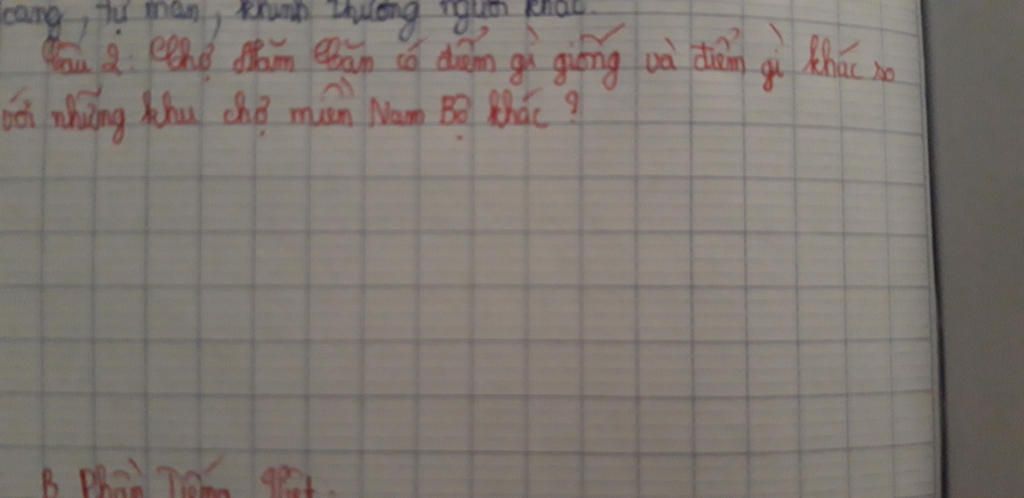 cang, tự mãn, khinh thường người khác.
Câu 2: Chợ Năm Căn có điểm gì giống và điểm gì khác so
với những khu chợ miền Nam Bộ khác?
B. Phần Tiếng Việt.